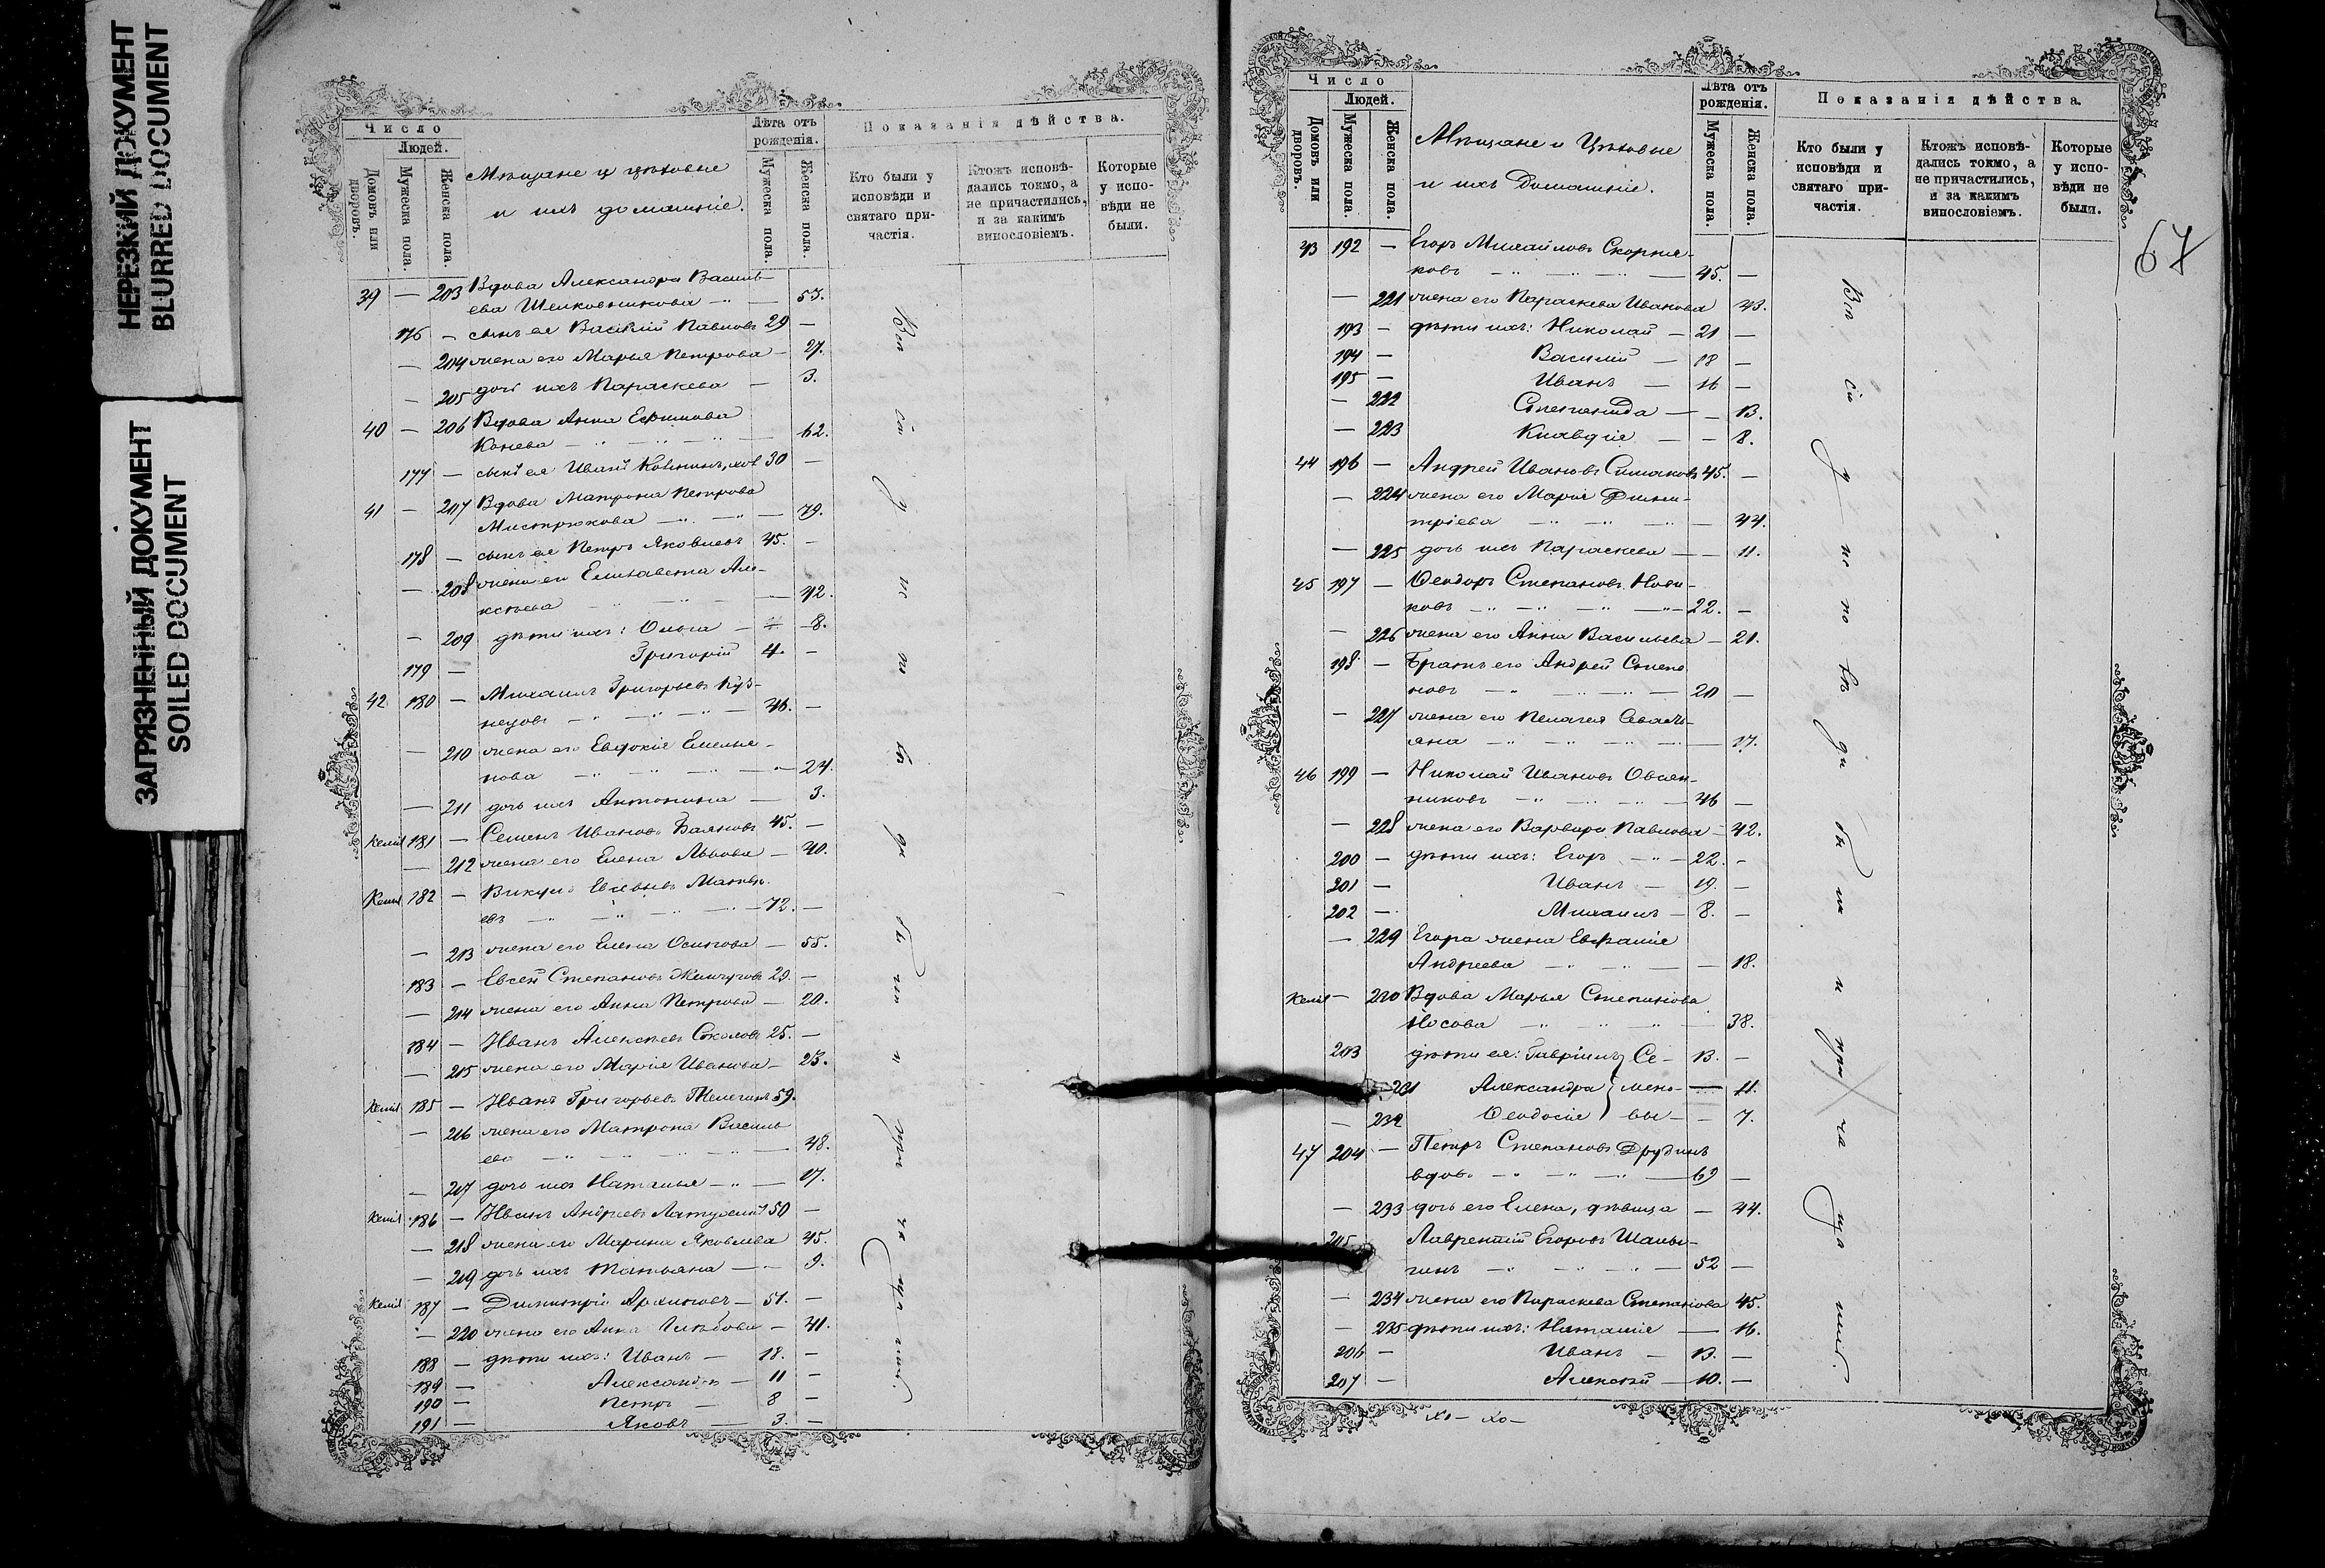 НЕРЕЗКИЙ ДОКУМЕНТ
BLURRED DOCUMENT
ЗАГРЯЗНЕННЫЙ ДОКУМЕНТ
SOILED DOCUMENT
Число
Людей.
Домовъ или дворовъ.
Мужеска пола.
Женска пола.
Мѣщане и цеховые
и ихъ домашніе.
Лѣта отъ рожденія.
Мужеска пола.
Женска пола.
Показанія дѣйства.
Кто были у исповѣди и святаго причастія.
Ктожъ исповѣдались токмо, а не причастились, и за какимъ винословіемъ.
Которые у исповѣди не были.
39 — 203 Вдова Александра Василь-
ева Шелковникова — 53.
176 — сынъ ея Василій Павловъ 29 —
— 204 жена его Марья Петрова — 27.
— 205 дочь ихъ Параскева — 3.
40 — 206 Вдова Анна Ефимова
Конева — 62.
177 — сынъ ея Иванъ 30 —
41 — 207 Вдова Матрона Петрова
Мистрюкова — 79.
178 — сынъ ея Петръ Яковлевъ 45. —
— 208 жена его Елисавета Але-
ксѣева — 42.
— 209 дѣти ихъ: Ольга — 8.
179 — Григорій 4. —
42 180 — Михаилъ Григорьевъ Куз-
нецовъ — 46. —
— 210 жена его Евдокія Емелья-
нова — 24.
— 211 дочь ихъ Антонина — 3.
181 — Семенъ Ивановъ Баяновъ 45. —
— 212 жена его Елена Львова — 40.
182 — Викулъ Евсевьевъ Матвѣ-
евъ — 72. —
— 213 жена его Елена Осипова — 55.
183 — Евсей Степановъ Жемчуговъ 29. —
— 214 жена его Анна Петрова — 20.
184 — Иванъ Алексѣевъ Соколовъ 25. —
— 215 жена его Марія Иванова — 23.
185 — Иванъ Григорьевъ Телегинъ 59.
— 216 жена его Матрона Василь-
ева — 48.
— 217 дочь ихъ Наталья — 17.
186 — Иванъ Андреевъ 50 —
— 218 жена его Марина Яковлева 45.
— 219 дочь ихъ Татьяна — 9.
187 — Димитрій Архиповъ — 51. —
— 220 жена его Анна Глѣбова — 41.
188 — дѣти ихъ: Иванъ — 18. —
189 — Александръ — 11 —
190 — Петръ — 8 —
191 — Яковъ — 3. —
Всѣ сіи у исповѣди были и причащались.
Число
Людей.
Домовъ или дворовъ.
Мужеска пола.
Женска пола.
Мѣщане и Цеховые
и ихъ Домашніе.
Лѣта отъ рожденія.
Мужеска пола.
Женска пола.
Показанія дѣйства.
Кто были у исповѣди и святаго причастія.
Ктожъ исповѣдались токмо, а не причастились, и за какимъ винословіемъ.
Которые у исповѣди не были.
67
43 192 — Егоръ Михайловъ Скорня-
ковъ — 45. —
— 221 жена его Параскева Иванова 43.
193 — дѣти ихъ: Николай — 21 —
194 — Василій — 18 —
195 — Иванъ — 16 —
— 222 Степанида — — 13.
— 223 Клавдія — — 8.
44 196 — Андрей Ивановъ Симаковъ 45. —
— 224 жена его Марія Дими-
тріева — 44.
— 225 дочь ихъ Параскева — — 11.
45 197 — Ѳеодоръ Степановъ Нови-
ковъ — 22. —
— 226 жена его Анна Васильева — 21.
198 — Братъ его Андрей Степа-
новъ — 20 —
— 227 жена его Пелагея Севасть-
яна — 17.
46 199 — Николай Ивановъ Овсян-
никовъ — 46 —
— 228 жена его Варвара Павлова — 42.
200 — дѣти ихъ: Егоръ — 22. —
201 — Иванъ — 19. —
202 — Михаилъ — 8. —
— 229 Егора жена Евфалія
Андреева — 18.
— 230 Вдова Марья Степанова
Носова — 38.
203 дѣти ея: Гавріилъ Се- 13. —
231 Александра мено- — 11.
— 232 Ѳеодосія вы — 7.
47 204 — Петръ Степановъ Друзинъ
вдовъ — 69 —
— 233 дочь его Елена, дѣвица — 44.
205 Лаврентій Егоровъ Шалы-
гинъ — 52 —
— 234 жена его Параскева Степанова 45.
— 235 дѣти ихъ: Наталія — 16.
206 — Иванъ — 13. —
207 — Алексѣй — 10. —
Всѣ сіи у исповѣди были и причащались.